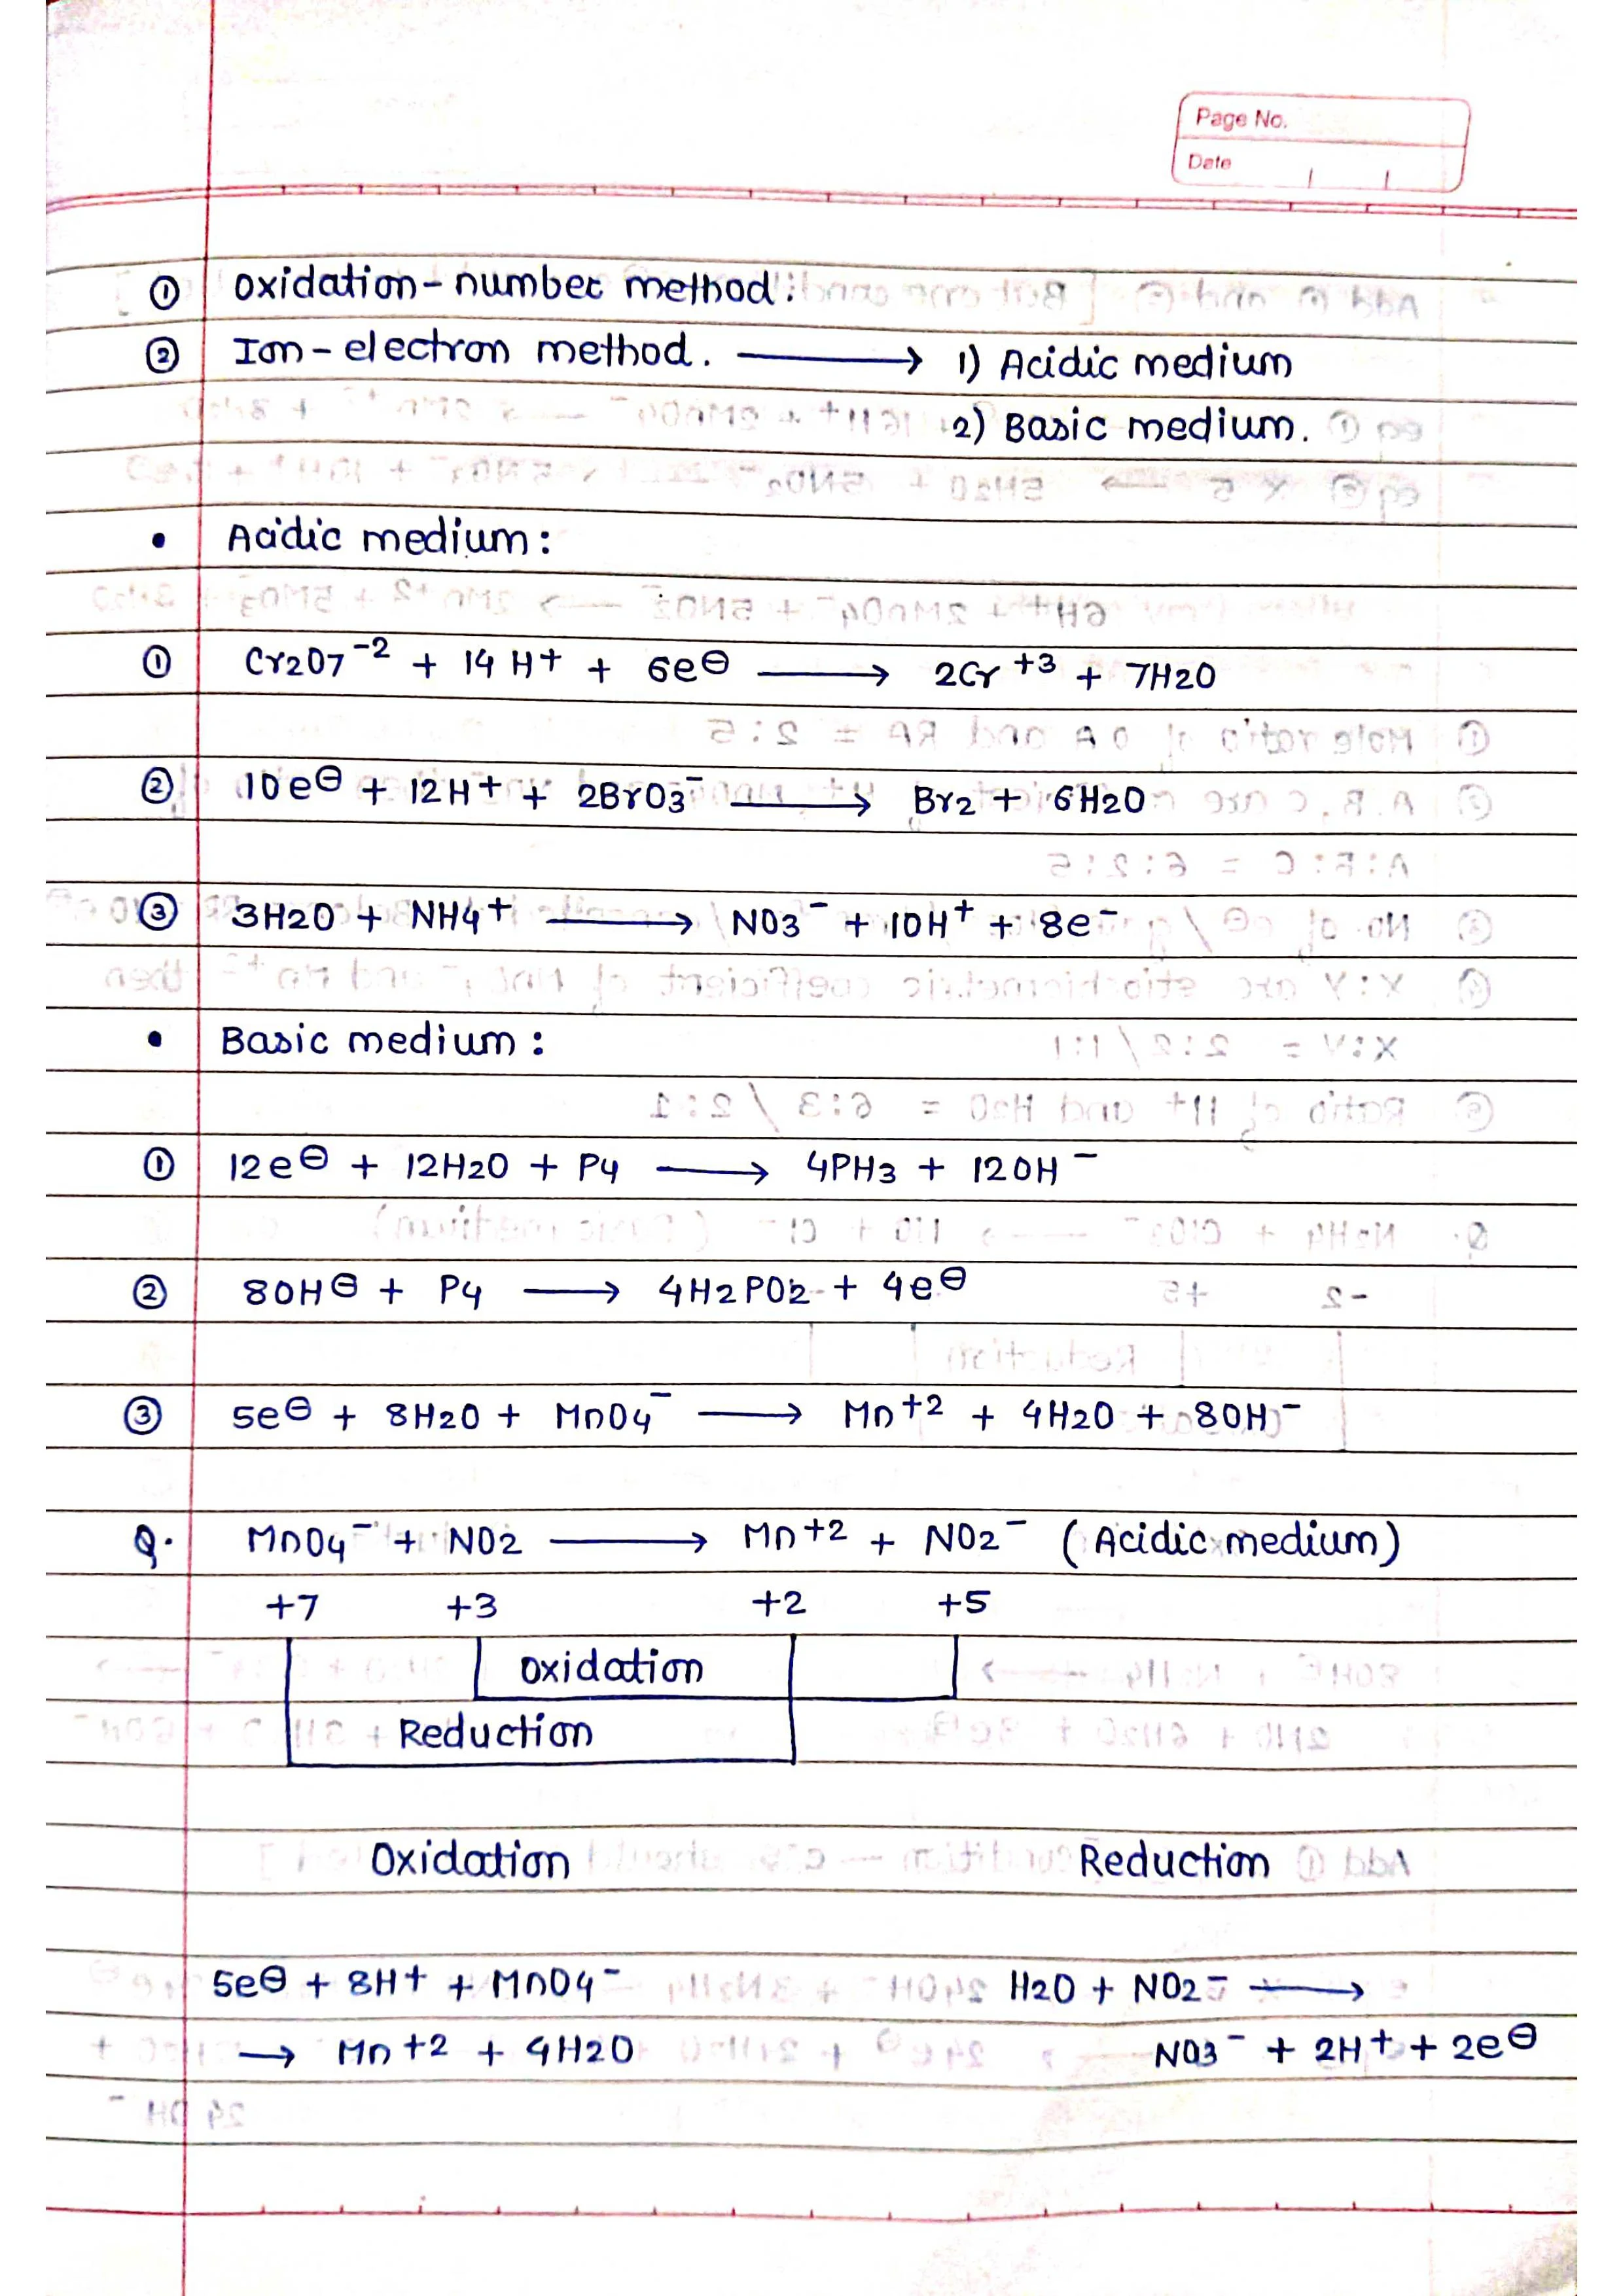 Page No.
Date
① oxidation-number method:
② Ion-electron method. ⟶ 1) Acidic medium
2) Basic medium.
• Acidic medium:
① Cr2O7⁻² + 14 H+ + 6e⊖ ⟶ 2Cr⁺³ + 7H2O
② 10e⊖ + 12H+ + 2BrO3⁻ ⟶ Br2 + 6H2O
③ 3H2O + NH4+ ⟶ NO3⁻ + 10H⁺ + 8e⁻
• Basic medium:
① 12e⊖ + 12H2O + P4 ⟶ 4PH3 + 12OH⁻
② 8OH⊖ + P4 ⟶ 4H2PO2- + 4e⊖
③ 5e⊖ + 8H2O + MnO4⁻ ⟶ Mn+2 + 4H2O + 8OH⁻
Q. MnO4⁻ + NO2 ⟶ Mn+2 + NO2⁻ (Acidic medium)
+7 +3 +2 +5
oxidation
Reduction
Oxidation Reduction
5e⊖ + 8H+ + MnO4⁻ H2O + NO2⁻ ⟶
⟶ Mn+2 + 4H2O NO3⁻ + 2H+ + 2e⊖